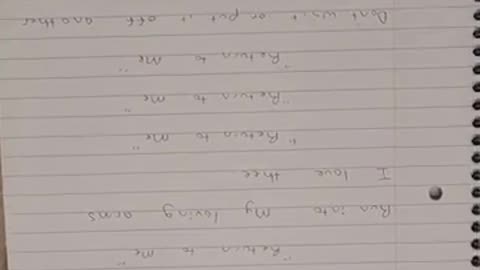 "Return to Me"
Run into My loving arms
I love thee
"Return to Me"
"Return to Me"
"Return to Me"
Dont wait or put it off another